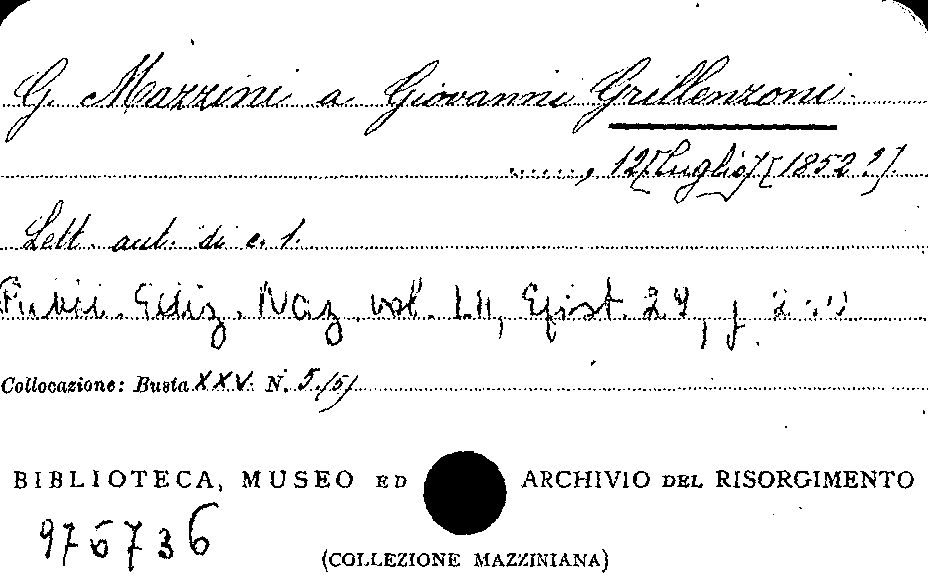 G. Mazzini a Giovanni Grillenzoni.
......, 12 [Luglio] [1852?].
Lett. aut. di c. 1.
Ediz. Naz. vol. Epist. 27, p.
Collocazione: Busta XXV. N. 5/5/
BIBLIOTECA, MUSEO ED ARCHIVIO DEL RISORGIMENTO
976736
(COLLEZIONE MAZZINIANA)